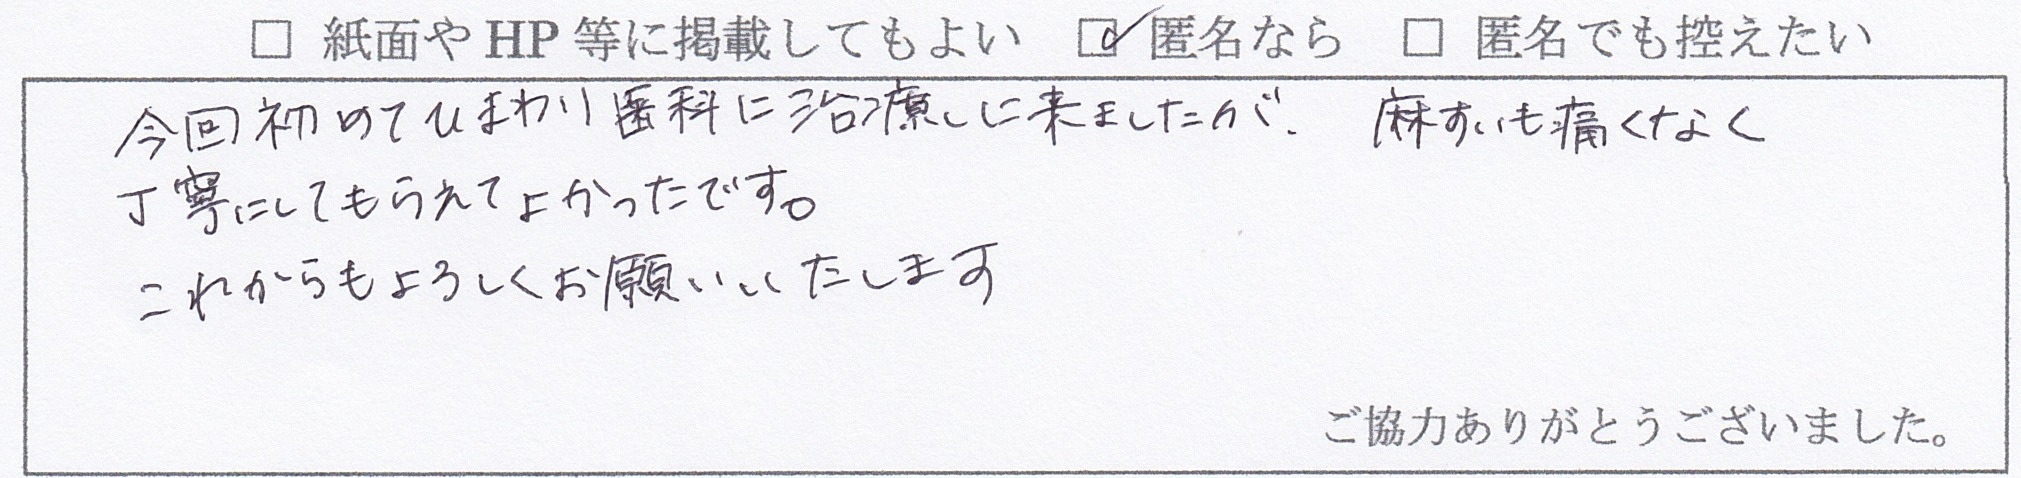 □ 紙面や HP 等に掲載してもよい ☑ 匿名なら □ 匿名でも控えたい
今回初めてひまわり歯科に治療しに来ましたが、麻すいも痛くなく
丁寧にしてもらえてよかったです。
これからもよろしくお願いいたします
ご協力ありがとうございました。